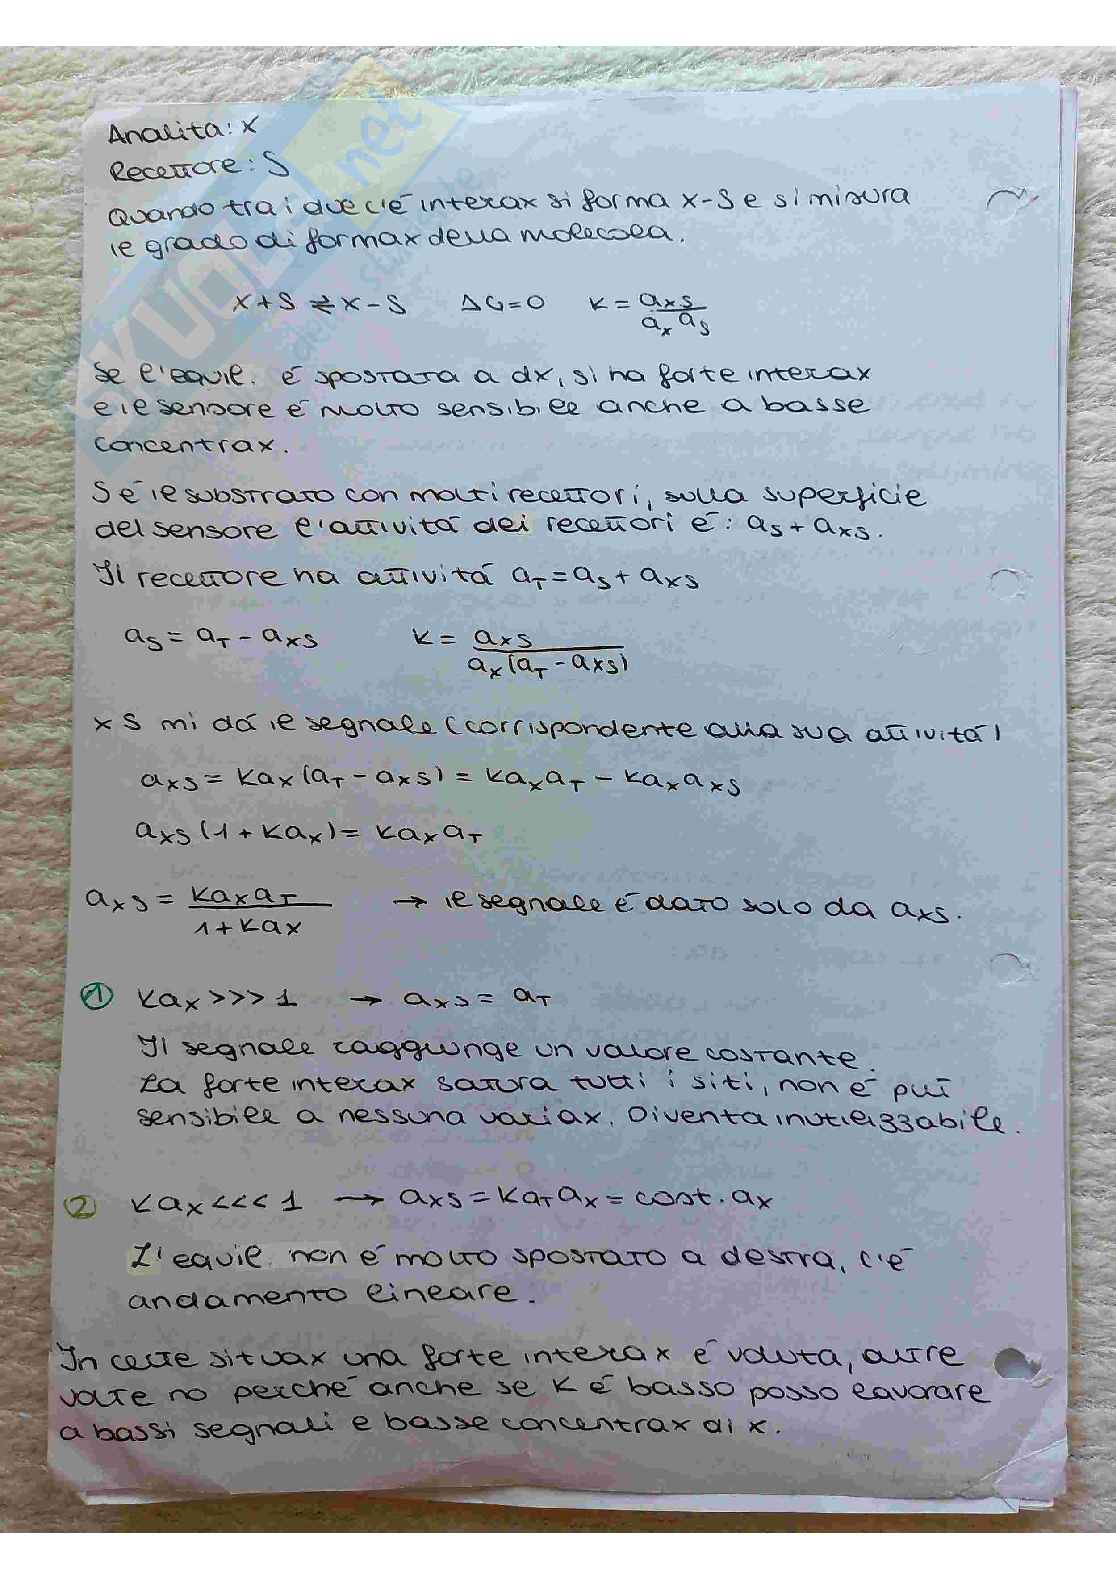 Analita: X
Recettore: S
Quando tra i due c'é interax si forma X-S e si misura
il grado di formax della molecola.
X + S ⇄ X - S    ΔG = 0    K = a_XS / (a_X a_S)
Se l'equil. é spostata a dx, si ha forte interax
e il sensore é molto sensibile anche a basse
concentrax.
S é il substrato con molti recettori, sulla superficie
del sensore l'attivitá dei recettori é: a_S + a_XS.
Il recettore ha attivitá a_T = a_S + a_XS
a_S = a_T - a_XS    K = a_XS / (a_X (a_T - a_XS))
XS mi dá il segnale (corrispondente alla sua attivitá)
a_XS = Ka_X (a_T - a_XS) = Ka_X a_T - Ka_X a_XS
a_XS (1 + Ka_X) = Ka_X a_T
a_XS = Ka_X a_T / (1 + Ka_X)    → il segnale é dato solo da a_XS.
① Ka_X >>> 1    → a_XS = a_T
Il segnale raggiunge un valore costante.
La forte interax satura tutti i siti, non é piú
sensibile a nessuna variax. Diventa inutilizzabile.
② Ka_X <<< 1    → a_XS = Ka_T a_X = cost. a_X
L'equil. non é molto spostato a destra, c'é
andamento lineare.
In certe situax una forte interax é voluta, altre
volte no perché anche se K é basso posso lavorare
a bassi segnali e basse concentrax di X.